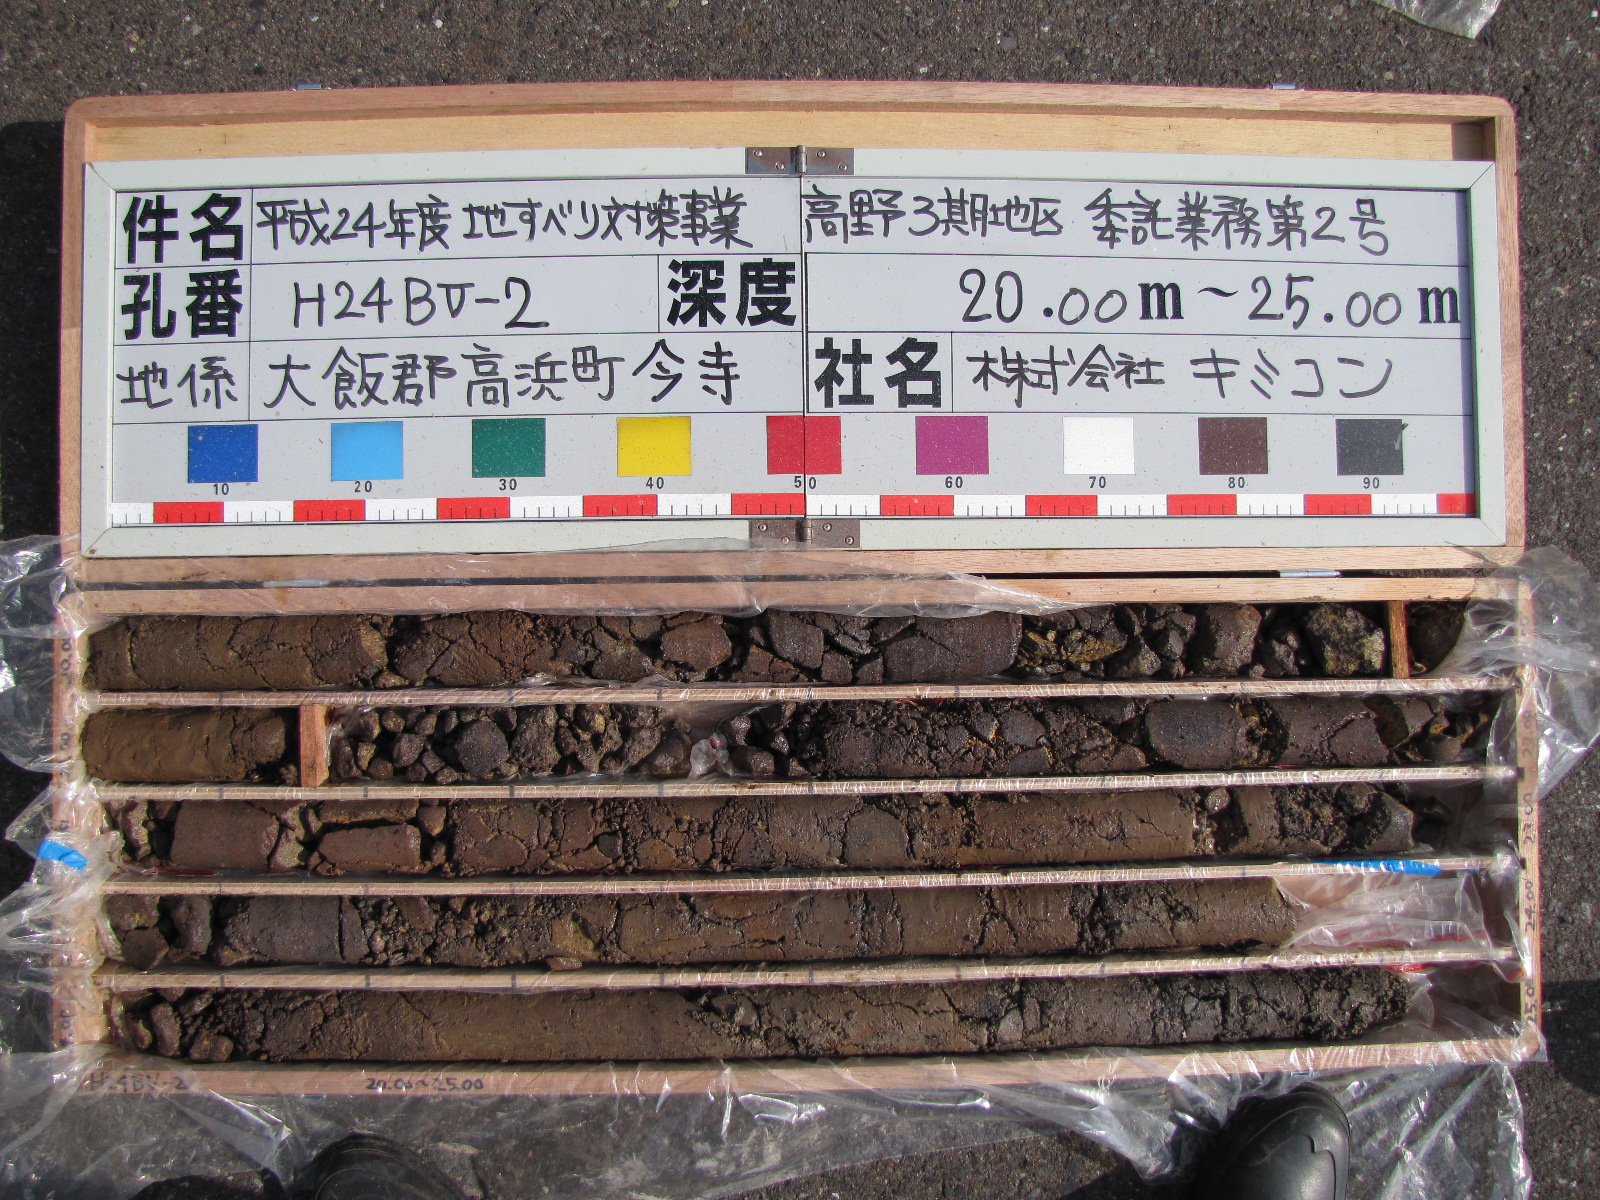 件名 平成24年度 地すべり対策事業 高野3期地区 委託業務第2号
孔番 H24BV-2 深度 20.00m~25.00m
地係 大飯郡高浜町今寺 社名 株式会社 キミコン
10 20 30 40 50 60 70 80 90
24.00
25.00
H24BV-2 20.00~25.00